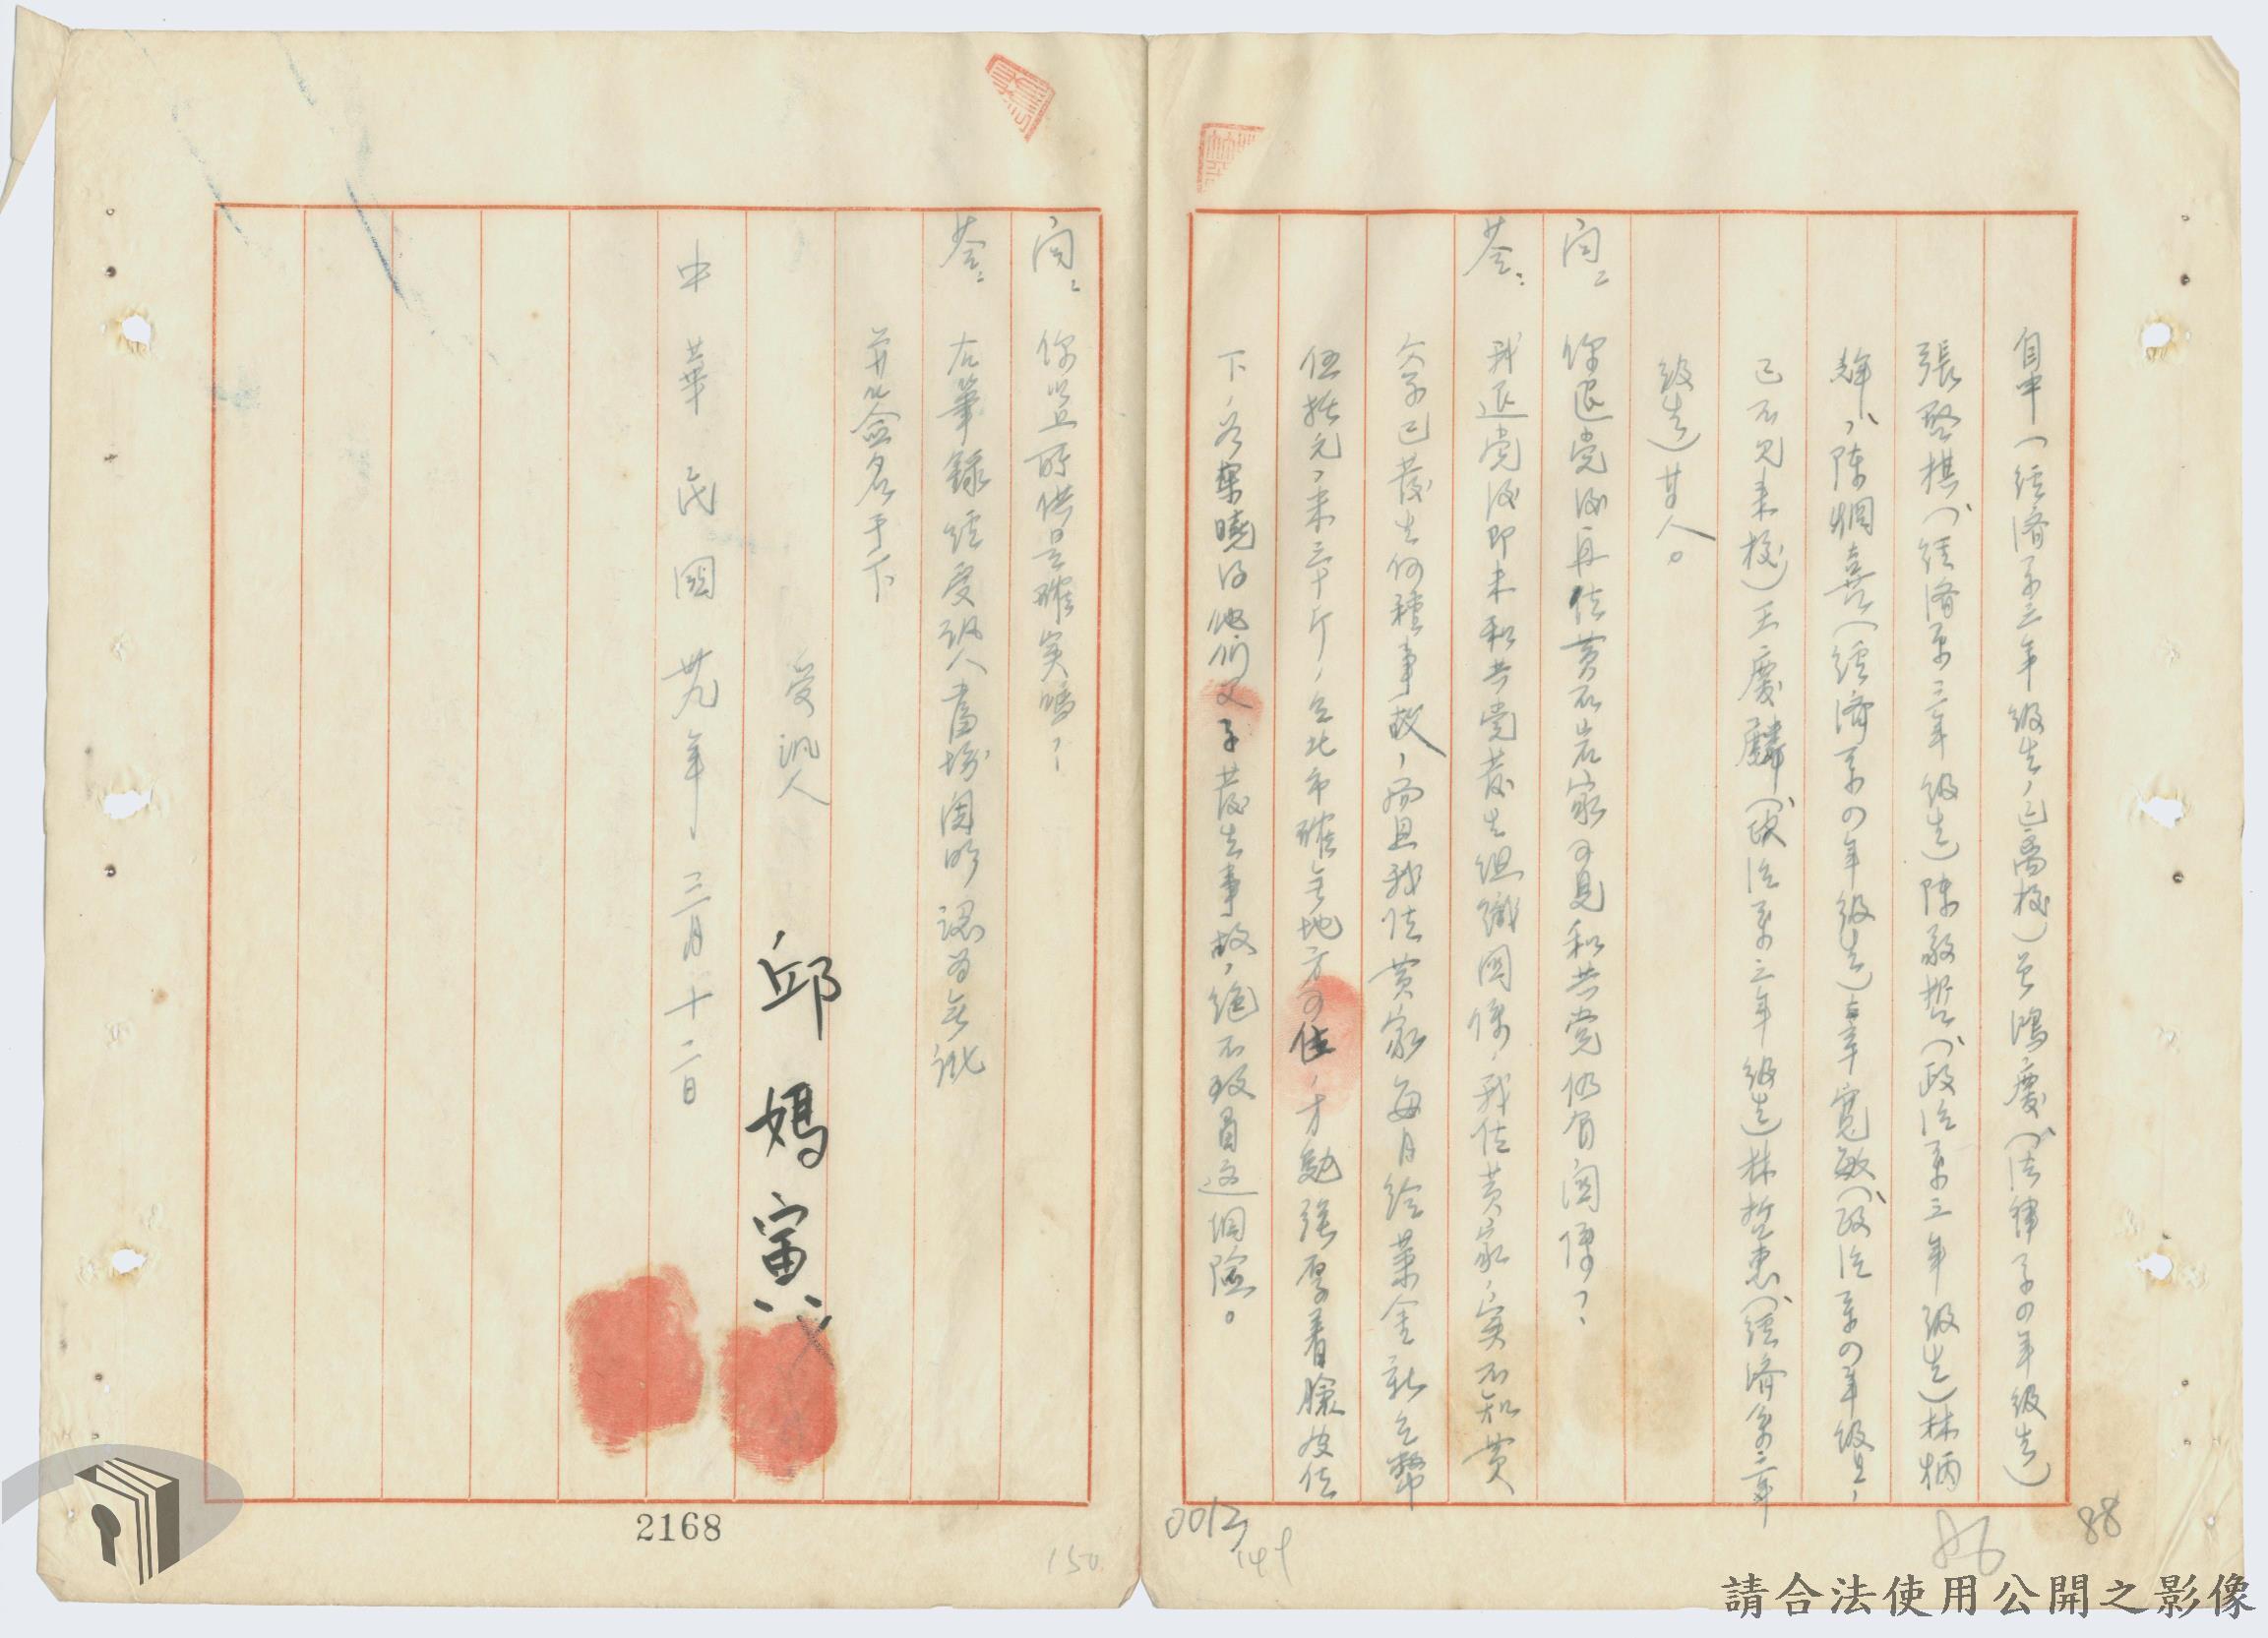 自中(經濟系三年級生,已离校)曾鴻慶(法律系四年級生)
張啓棋(經濟系三年級生)陳敬哲(政治系三年級生)林炳
煇、陳炯喜(經濟系四年級生)辜寬敏(政治系四年級生,
已不見来校)王慶麟(政治系三年級生)林哲惠(經濟系二年
級生)廿人。
问: 你退党後再住黄石岩家可見和共党仍有関係?
答: 我退党後即未和共党發生組織関係,我住黄家,实不知黄
父子已發生何種事故,而且我住黄家每月給菜金新台幣
伍拾元,来三十斤,台北市確無地方可住,才勉强厚着臉皮住
下,若果曉得他們父子發生事故,絶不致冒这個險。
问: 你以上所供是確实嗎?
答: 右筆録經受訊人當場閱明認為無訛
并簽名于下
受訊人 邱媽寅
中華民國卅九年三月十二日
2168
150
0012
149
86
88
請合法使用公開之影像